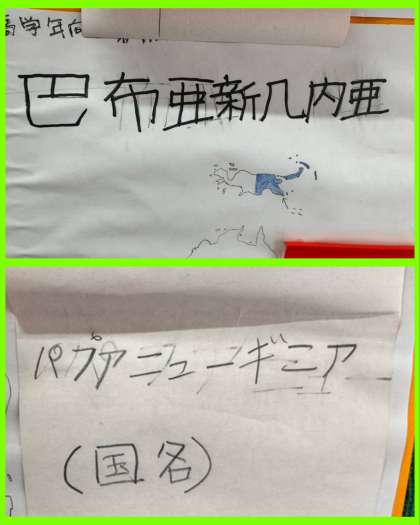 高学年向
巴布亜新几内亜
パプアニューギニア
(国名)